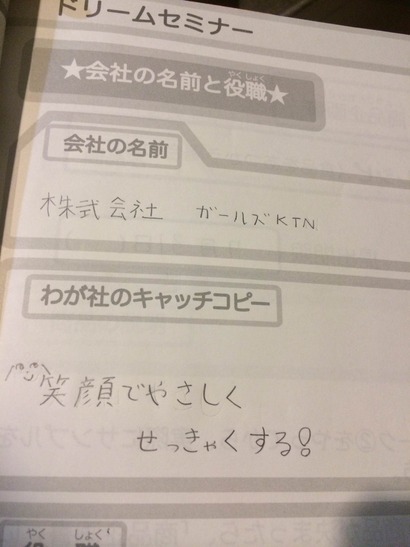 ドリームセミナー
★会社の名前と役職★
やく しょく
会社の名前
株式会社 ガールズKTN
わが社のキャッチコピー
笑顔でやさしく
せっきゃくする!
やく しょく